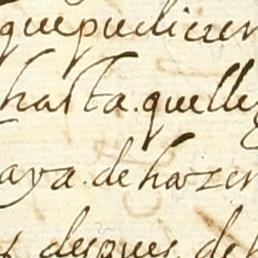 que pudieren
hasta. que lle
aya. de hazer
despues. de